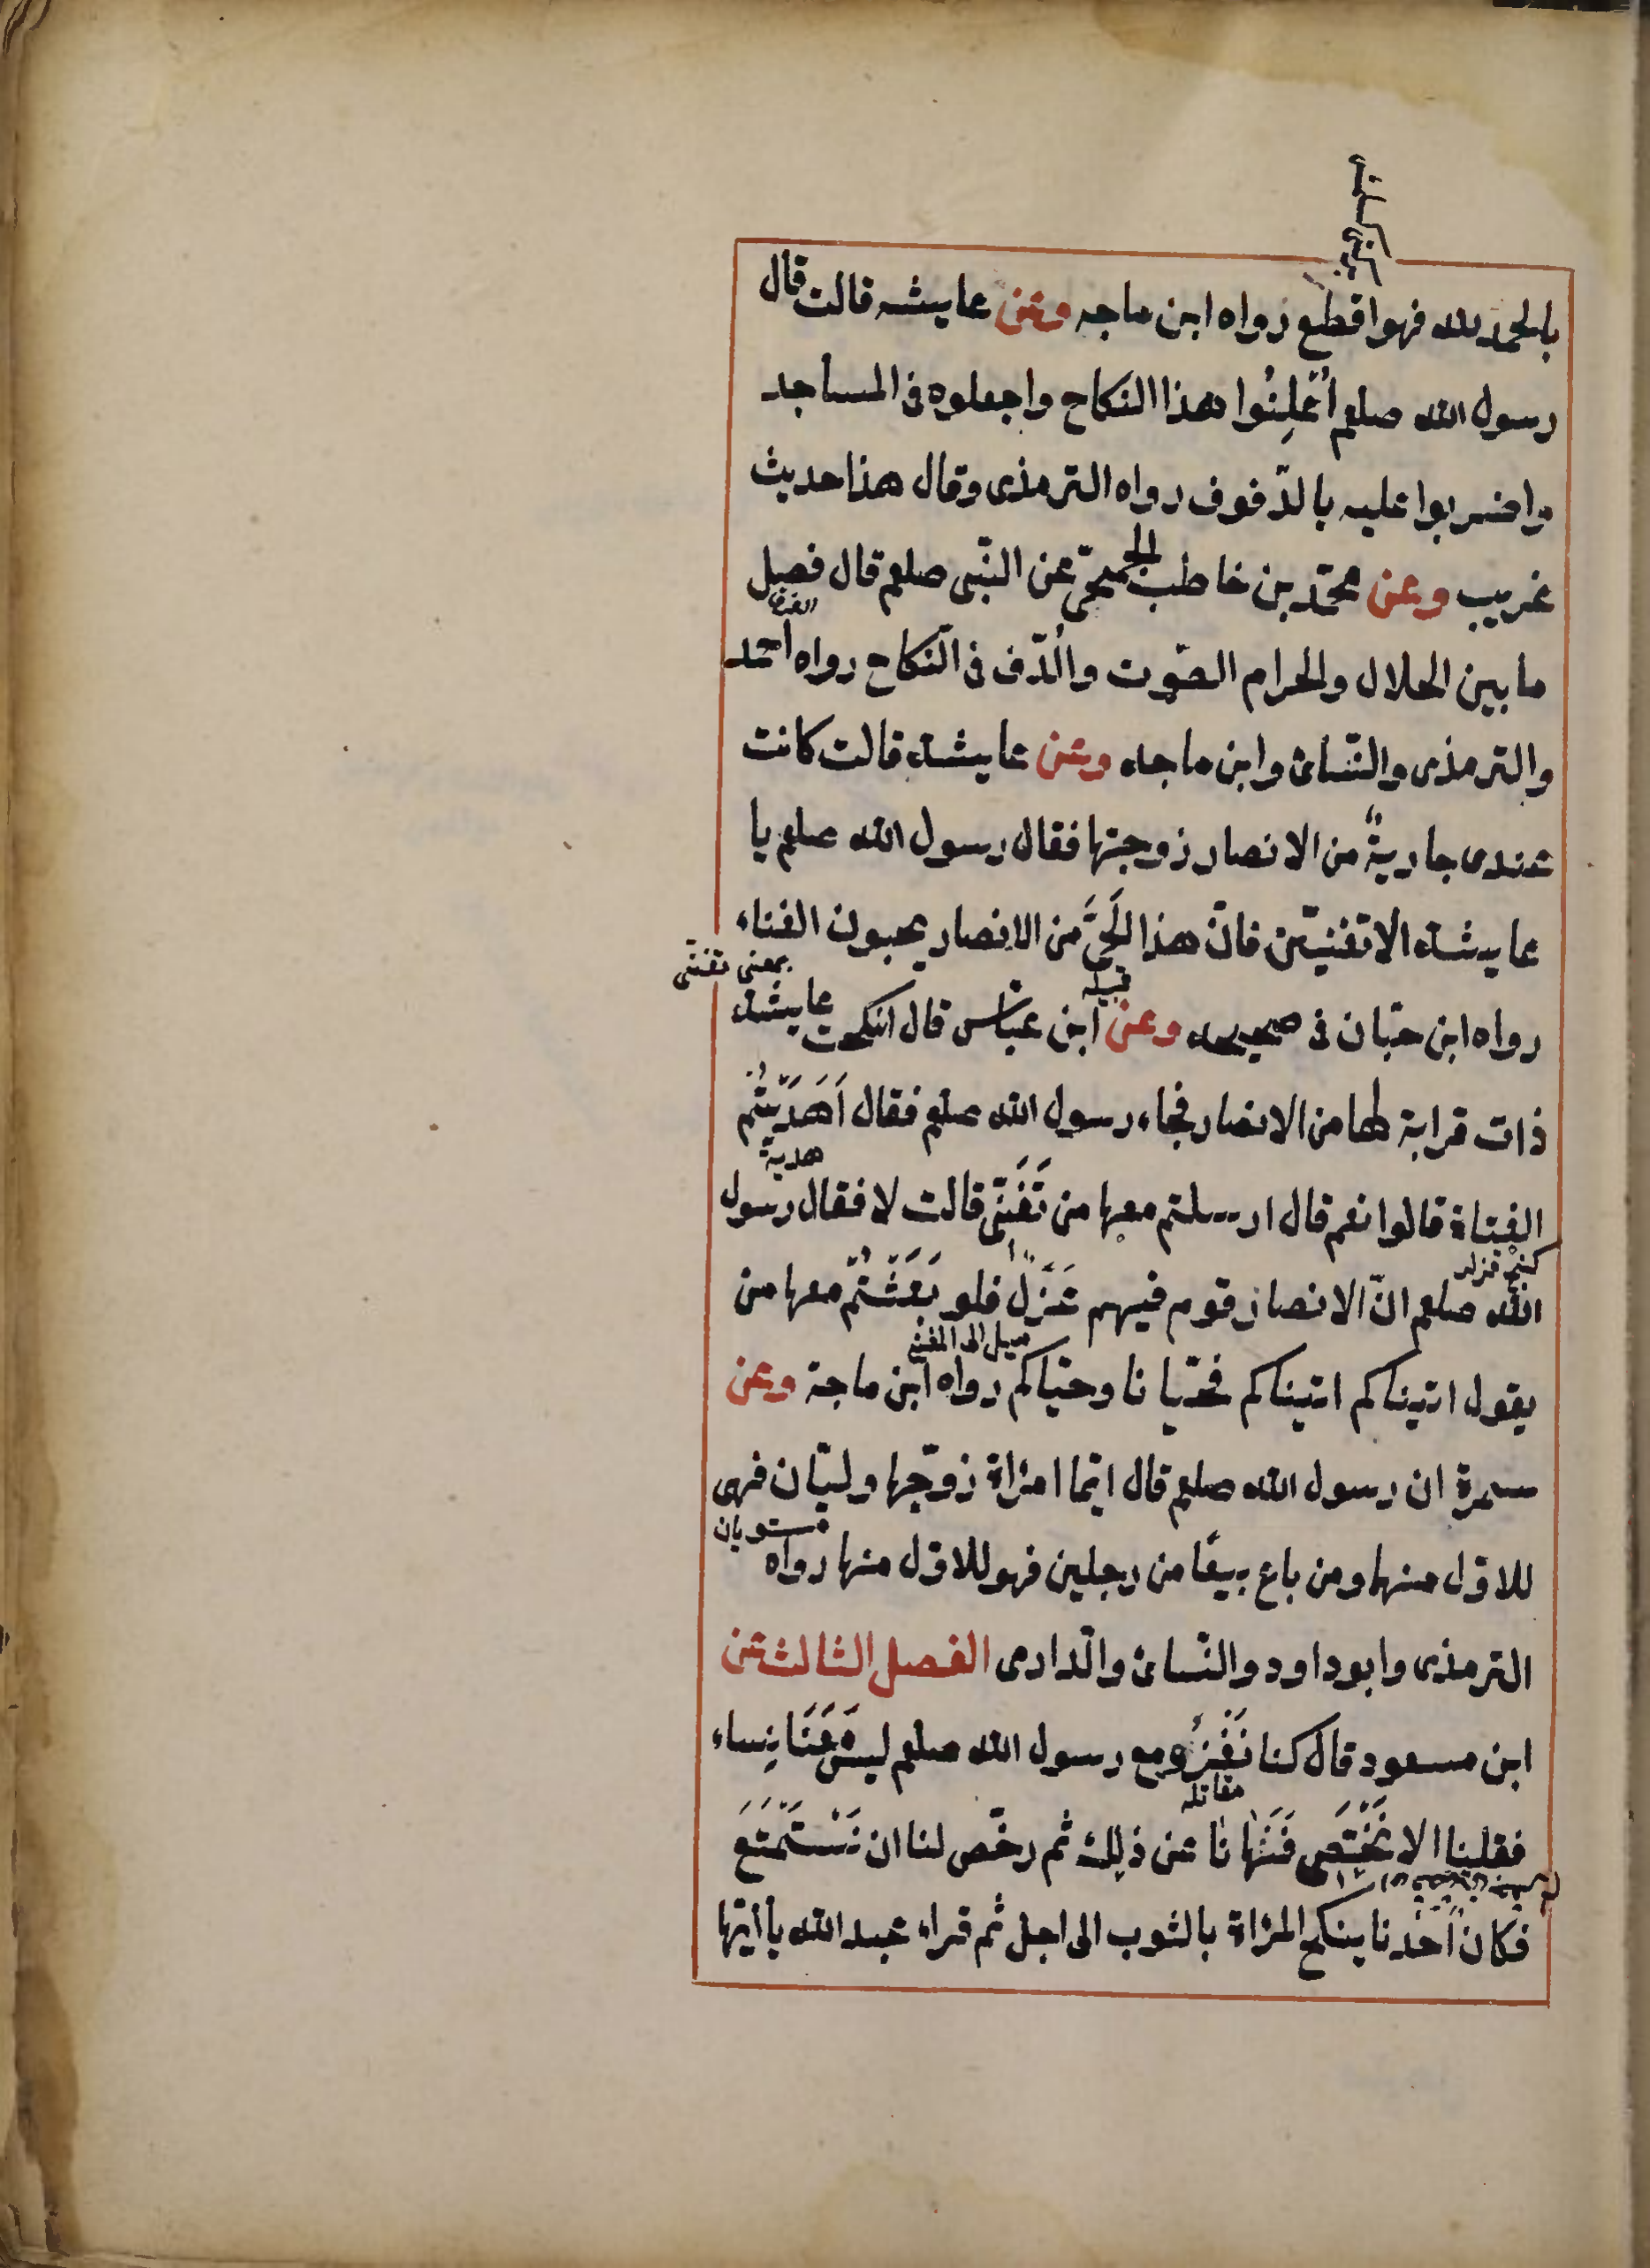 بالحمد لله فهو اقطع رواه ابن ماجه وعن عايشه قالت قال
رسول الله صلعم أَعْلِنُوا هذا النكاح واجعلوه فى المساجد
واضربوا عليه بالدّفوف رواه الترمذى وقال هذا حديث
غريب وعن محمّد بن خاطب الجمحىّ عن النّبى صلعم قال فصل
الفرق
ما بين الحلال والحرام الصّوت والُدّف فى النّكاح رواه احمد
والترمذى والنّسائ وابن ماجه وعن عايشه قالت كانت
عندى جاريةٌ من الانصار زوجتها فقال رسول الله صلعم يا
عايشه الا تغنيّن فانّ هذا الَحىَّ من الانصار يحبون الغناء
بمعنى تغنّى
قبيله
رواه ابن حبّان فى صحيحه وعن ابن عبّاس قال انكحت عايشه
ذات قرابة لها من الانصار فجاء رسول الله صلعم فقال اَهَدَيْتُم
هدية
الفتاة قالوا نعم قال ارسلتم معها من تَغَنّى قالت لا فقال رسول
الله صلعم انّ الانصار قوم فيهم غَزَلٌ فلو بَعَثْتُم معها من
ميل الى المغنى
يقول اتيناكم اتيناكم فحيّانا وحيّاكم رواه ابن ماجة وعن
سمرة ان رسول الله صلعم قال ايّما امرْاة زوّجها وليّان فهى
مستويان
للاوّل منهما ومن باع بيعًا من رجلين فهو للاوّل منها رواه
الترمذى وابو داود والنّسائ والّدارمى الفصل الثالث عن
ابن مسعود قال كنا نَغْزُو مع رسول الله صلعم ليس مَعَنَا نِساء
مقاتله
فقلنا الا نَخْتَصى فَنَهٰانٰا عن ذلِك ثم رخّص لنا ان نَسْتَمْتَعَ
فكان اَحَدنا ينكح المرْاة بالثوب الى اجل ثم قراء عبد الله يا أيّها